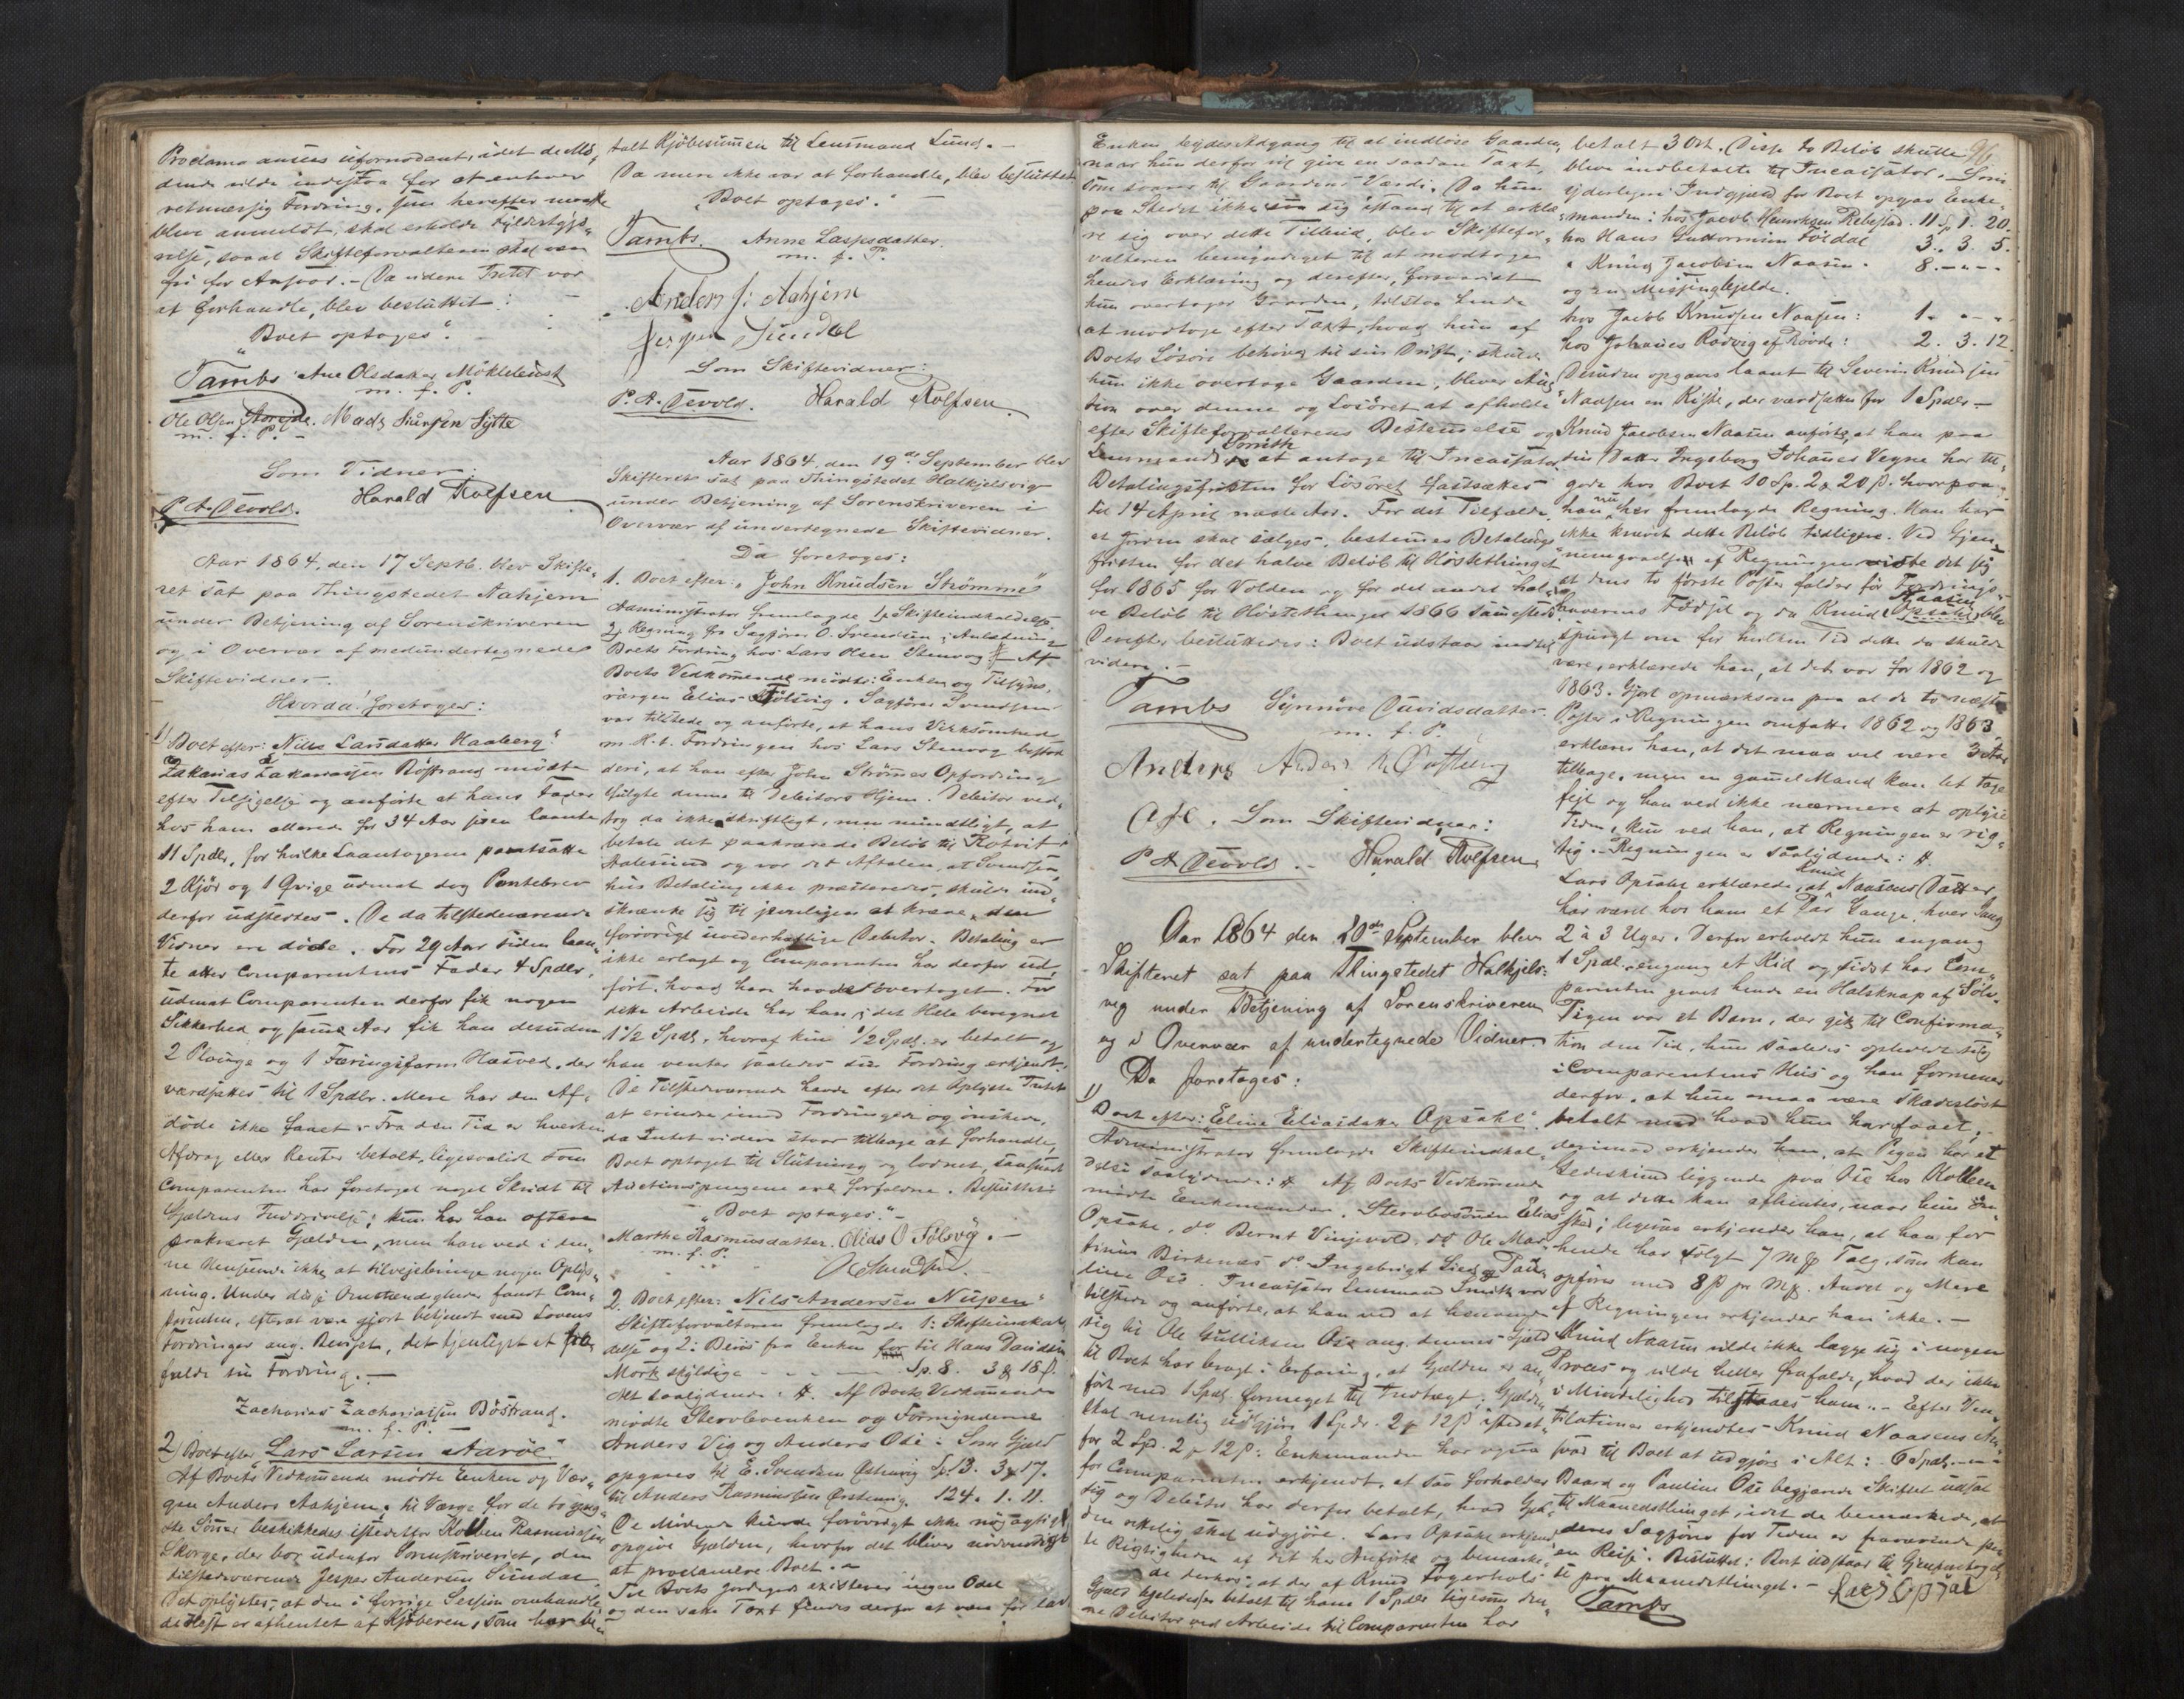 Proclama ansees ufornødent, idet de Mø-
dende vilde indestaa for at enhver
retmæssig Fordring, som herefter maatte
blive anmeldt, skal erholde Fyldestgjø-
relse, saa at Skifteforvalteren skal være
fri for Ansvar. - Da videre Intet var
at forhandle, blev besluttet:
"Boet optages".
Tambs Ane Olsdatter Möklebust
m. f. P.
Ole Olsen Aarejde. Mads Siursen Sytte
m. f. P.
Som Vidner:
P. A. Devold. Harald Rolfsen
Aar 1864, den 17 Septb. blev Skifte-
ret sat paa Thingstedet Aahjem
under Betjening af Sorenskriveren
og i Overvær af medundertegnede
Skiftevidner.
Hvorda foretoges:
1) Boet efter: Nille Larsdatter Haaberg."
Zakarias Zakariassen Böstrand mödte
efter Tilsigelse og anförte at hans Fader
hos ham allerede for 34 Aar siden laante
11 Spdlr, for hvilke Laantageren pantsatte
2 Kjör og 1 Qvige uden at dog Pantebrev
derfor udstedtes. De da tilstedeværende
Vidner ere döde. For 29 Aar siden laan-
te atter Comparentens Fader 4 Spdlr,
uden at Comparenten derfor fik nogen
Sikkerhed og samme Aar fik han desuden
2 Plouge og 1 Færingsfarm Hasved, der
værdsattes til 1 Spdlr. Mere har den Af-
döde ikke faaet. Fra den Tid er hverken
Afdrag eller Renter betalt, ligesaalidt som
Comparenten har foretaget noget Skridt til
Gjældens Inddrivelse; kun har han oftere
paakrævet Gjælden, men han ved i den-
ne Henseende ikke at tilvejebringe nogen Oplys-
ning. Under disse Omstændigheder fandt Com-
parenten, efterat være gjort bekjendt med Lovens
Fordringer ang. Beviset, det tjenligst at fra-
falde sin Fordring. -
Zacharias Zachariassen Böstrand.
m. f. P.
2) Boet efter "Lars Larsen Aaröe"
Af Boets Vedkommende mødte Enken og Vær-
gen Anders Aahjem, til Værge for de to yng-
ste Sönner beskikkedes istedetfor Kolben Rasmussen
Skorge, der bor udenfor Sorenskriveriet, den
tilstedeværende Jesper Andersen Sundal
Det oplystes, at den i forrige Session omhandle-
de Hest er afhentet af Kjøberen, som har be-
talt Kjöbesummen til Lensmand Lund. -
Da mere ikke var at forhandle, blev besluttet
"Boet optages." -
Tambs. Anne Laspsdatter.
m. f. P.
Anders J: Aahjem
Jesper Sundal
Som Skiftevidner:
P. A. Devold. Harald Rolfsen.
Aar 1864, den 19de September blev
Skifteret sat paa Thingstedet Halkjelsvig
under Betjening af Sorenskriveren i
Overvær af undertegnede Skiftevidner.
Da foretoges:
1. Boet efter: "John Knudsen Strömme"
Administrator fremlagde 1, Skifteindkaldelse
2, Regning fra Sagförer O. Svendsen i Anledning
Boets Fordring hos Lars Olsen Stenvog. Af
Boets Vedkommende mödte: Enken og Tilsyns-
værgen Elias Fölsvig. Sagförer Svendsen
var tilstede og anförte, at hans Virksomhed
m. H. t. Fordringen hos Lars Stenvog bestod
deri, at han efter John Strömmes Opfordring
fulgte denne til Debitors Hjem. Debitor ved-
tog da ikke skriftligt, men mundtligt, at
betale det paakrævede Beløb til
Aalesund og var det Aftalen, at Svendsen,
hvis Betaling ikke præsteredes, skulde ind-
skrænke sig til jevnligen at kræve den
forövrigt uvederhæftige Debitor. Betaling er
ikke erlagt og Comparenten har derfor ud-
fört, hvad han havde overtaget. For
dette Arbeide har han i det Hele beregnet
1 1/2 Spdl, hvoraf kun 1/2 Spdl. er betalt og
han venter saaledes sin Fordring erkjendt.
De Tilstedeværende havde efter det Oplyste Intet
at erindre imod Fordringen og önskede,
da Intet videre staar tilbage at forhandle,
Boet optaget til Slutning og loddnet, saasnart
Auctionspengene ere forfaldne. Besluttet:
"Boet optages." -
Marthe Rasmusdatter. Elias O Fölsvig. -
m. f. P.
O Svendsen.
2. Boet efter: Nils Andersen Nupen"
Skifteforvalteren fremlagde 1: Skifteindkal-
delse og 2: Bevis fra Enken for til Hans Davidsen
Mork skyldige - - - - Sp. 8. 3 # 18 ß.
Alt saalydende: #. Af Boets Vedkommende
mödte Stervboenken og Formynderne
Anders Vig og Anders Osi: Som Gjæld
opgaves til E. Svendsen Østenvig Sp. 13. 3 # 17.
til Anders Rasmussen Ørstenvig. 124. 1. 11.
De Mödende kunde forövrigt ikke nöjagtigt
opgive Gjælden, hvorfor det bliver nödvendigt
at proclamere Boet. -
Til Boets Jordegods existerer ingen Odel
og den satte Taxt findes derfor at være for lav
Enken bydes Adgang til at indlöse Gaarden,
naar hun derfor vil give en saadan Taxt,
som svarer til Gaardens Værdi. Da hun
paa Stedet ikke saa sig istand til at erklæ-
re sig over dette Tilbud, blev Skiftefor-
valteren bemyndiget til at modtage
hendes Erklæring og derefter, forsaavidt
hun overtager Gaarden, tilstaa hende
at modtage efter Taxt, hvad hun af
Boets Lösöre behöver til sin Drift; skulde
hun ikke overtage Gaarden, bliver Auc-
tion over denne og Lösöret at afholde
efter Skifteforvalterens Bestemmelse og
Lensmand Smith at antage til Incassator.
Betalingsfristen for Lösöret fastsættes
til 14 April næste Aar. For det Tilfælde,
at Jorden skal sælges, bestemmes Betalings-
fristen for det halve Belöb til Höstethinget
for 1865 for Volden og for det andet hal-
ve Belöb til Höstethinget 1866 sammesteds.
Derefter besluttedes: Boet udstaar indtil
videre. -
Tambs Synnöve Davidsdatter.
m. f. P.
Anders Anders
Som Skiftevidner:
P A Devold. - Harald Rolfsen
Aar 1864 den 20de September blev
Skifteret sat paa Thingstedet Halkjels-
vig under Betjening af Sorenskriveren
og i Overvær af undertegnede Vidner.
Da foretoges:
1) Boet efter: "Eline Eliasdatter Opsahl".
Administrator fremlagde Skifteindkal-
delse saalydende: #. Af Boets Vedkommende
mødte Enkemanden. Stervbosönnen Elias
Opsahl, do Bernt Vinjevold, do Ole Mar-
tinus Birkenæs do Ingebrigt Lied og Pau-
line Ose. Incassator Lensmand Smith var
tilstede og anförte, at han ved at henvende
sig til Ole Gulliksen Ose ang. dennes Gjæld
til Boet har bragt i Erfaring, at Gjælden er an-
fört med 1 Spdl. formeget til Indtægt; Gjælden
skal nemlig udgjöre 1 Spdr. 2 # 12 ß istedet-
for 2 Spd. 2 # 12 ß: Enkemanden har ogsaa
for Comparenten erkjendt, at saa forholder
sig og Debitor har derfor betalt, hvad Gjæl-
den rettelig skal udgjöre. Lars Opsahl erkjend-
te Rigtigheden af det her Anförte og bemærke-
de derhos, at der af Knud Fagerhol's
Gjæld ligeledes er betalt til ham 1 Spdlr ligesom den-
ne Debitor ved Arbeide til Comparenten har
betalt 3 Ort. Disse to Beløb skulle
96
blive indbetalte til Incassator. Som
yderligere Indgjæld for Boet opgav Enke-
manden: hos Jacob Henriksen Rebestad. 11 Sp. 1. 20.
hos Hans Guttormsen Foldal 3. 3. 5.
" Knud Jacobsen Naasen. 8. - " -
og en Messingkjedel.
hos Jacob Knudsen Naasen: 1. - " -
hos Johannes Rödvig af Rövde: 2. 3. 12.
Desuden opgaves laant til Severin Knudsen
Naasen en Kiste, der værdsattes for 1 Spdlr. -
Knud Jacobsen Naasen anförte, at han paa
sin Datter Ingeborg Johannes Vegne har til-
gode hos Boet 10 Sp. 2 # 20 ß. hvorpaa
han nu her fremlagde Regning. Han har
ikke krævet dette Beløb tidligere. Ved Gjen-
nemgaaelsen af Regningen viste det sig
at dens to förste Poster faldes för Fordrings-
haverens Födsel og da Knud Naasen blev
spurgt om for hvilken Tid dette da skulde
være, erklærede han, at det var for 1862 og
1863. Gjort opmærksom paa at de to næste
Poster i Regningen omfatte 1862 og 1863,
erklærer han, at det maa vel være 3 Aar
tilbage, men en gammel Mand kan let tage
fejl og han ved ikke nærmere at oplyse
Tiden, kun ved han, at Regningen er rig-
tig. - Regningen er saalydende: #.
Lars Opsahl erklærede, at Knud Naasens Datter
har været hos ham et Par Gange, hver Gang
2 à 3 Uger. Derfor erholdt hun engang
1 Spdl., engang et Kid og sidst har Com-
parenten givet hende en Halsknap af Sölv.
Pigen var et Barn, der gik til Confirma-
tion den Tid, hun saaledes opholdt sig
i Comparentens Hus og han formener
derfor, at hun maa være skadeslöst
betalt med hvad hun har faaet;
derimod erkjender han, at Pigen har et
Gedeskind liggende paa Ose hos Kolbeen
og at dette kan afhentes, naar hun öns-
sker; ligesom erkjender han, at han for
hende har solgt 7 m# Talg, som kan
opföres med 8 ß pr. m#. Andet og Mere
af Regningen erkjender han ikke. -
Knud Naasen vilde ikke lægge sig i nogen
Proces og vilde heller frafalde, hvad der ikke
i Mindelighed tilstaaes ham. - Efter Ven-
tilationer erkjendtes Knud Naasens An-
svar til Boet at udgjöre i Alt: 6 Spdl. - " -
Baard og Pauline Ose begjærede Skiftet udsat
til Maanedsthinget, idet de bemærkede, at
deres Sagförer for Tiden er fraværende paa
en Rejse. Besluttet: Boet udstaar til Gjenforetagel-
se paa Maanedsthinget. - Lars Opsal
Tambs